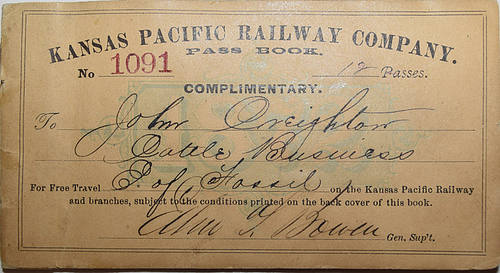 KANSAS PACIFIC RAILWAY COMPANY.
PASS BOOK.
No 1091 12 Passes.
COMPLIMENTARY.
To John Creighton
Cattle Business
For Free Travel E. of Fossil on the Kansas Pacific Railway
and branches, subject to the conditions printed on the back cover of this book.
Bowen Gen. Sup't.